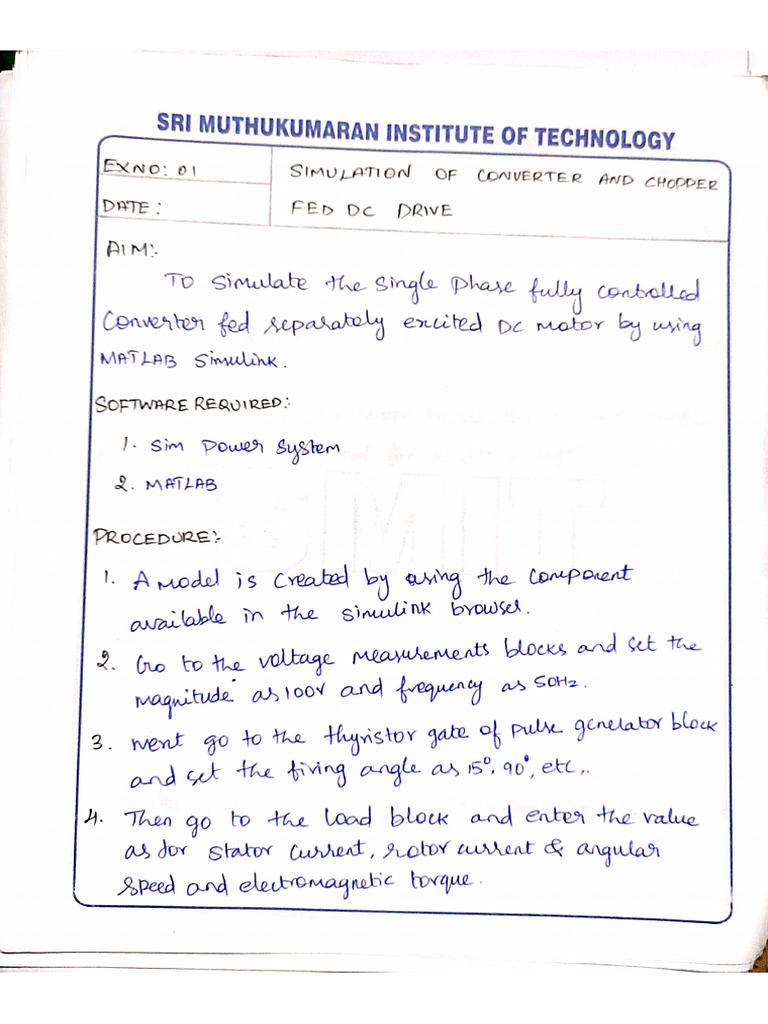 SRI MUTHUKUMARAN INSTITUTE OF TECHNOLOGY
EXNO: 01
SIMULATION OF CONVERTER AND CHOPPER
DATE:
FED DC DRIVE
AIM:-
To Simulate the Single Phase fully controlled
Converter fed separately excited DC motor by using
MATLAB Simulink.
SOFTWARE REQUIRED:-
1. Sim Power System
2. MATLAB
SMIT
PROCEDURE:-
1. A model is created by using the component
available in the simulink browser.
2. Go to the voltage measurements blocks and set the
magnitude as 100v and frequency as 50Hz.
3. next go to the thyristor gate of pulse generator block
and set the firing angle as 15°, 90°, etc,.
4. Then go to the load block and enter the value
as for stator current, rotor current & angular
speed and electromagnetic torque.